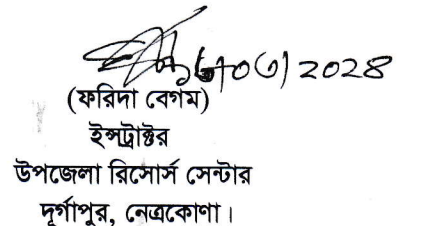 (ফরিদা বেগম)
ইন্সট্রাক্টর
উপজেলা রিসোর্স সেন্টার
দূর্গাপুর, নেত্রকোণা।